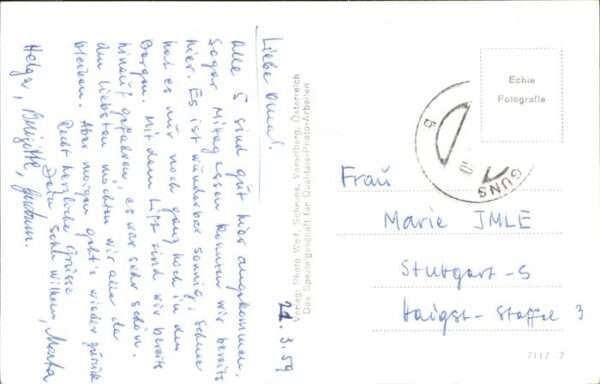 Liebe Oma!
Alle 5 sind gut hier angekommen.
Sogar Mittagessen konnten wir bereits
hier. Es ist wunderbar sonnig, Schnee
hat es nur noch ganz hoch in den
Bergen. Mit dem Lift sind wir bereits
hinauf gefahren, es war sehr schön.
Am liebsten möchten wir alle da
bleiben. Aber morgen geht's wieder zurück
Recht herzliche Grüsse
Dein Sohn Wilhelm, Marta
Helga, Brigitte,
21.3.59
Verlag: Photo Wolf, Schruns, Vorarlberg, Österreich
Das Spezialgeschäft für Qualitäts-Photo-Arbeiten
Echte
Fotografie
UNS
5
Frau
Marie IMLE
Stuttgart-S
Haigst-Staffel 3
7117 2